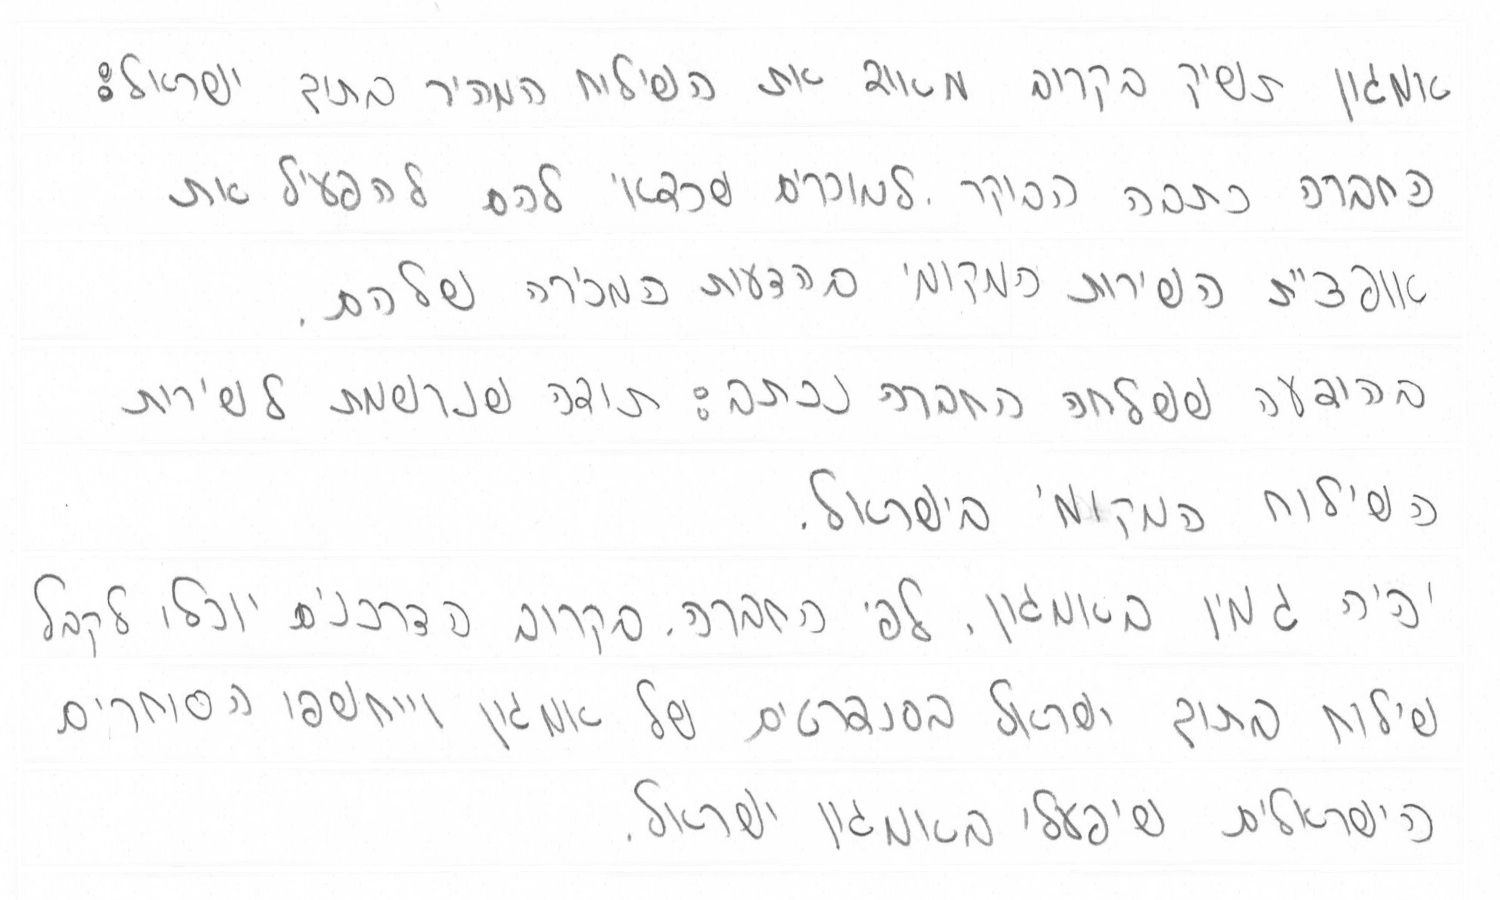 אמזון תשיק בקרוב מאוד את השילוח המהיר בתוך ישראל:
החברה כתבה הבוקר. למוכרים שכדאי להם להפעיל את
אופציית השירות המקומי בהדעות המכירה שלהם.
בהודעה ששלחה החברה נכתב: תודה שנרשמת לשירות
השילוח המקומי בישראל.
יהיה זמין באמזון, לפי החברה. בקרוב הצרכנים יוכלו לקבל
שילוח בתוך ישראל בסנדרטים של אמזון וייחשפו הסוחרים
הישראלים שיפעלו באמזון ישראל.